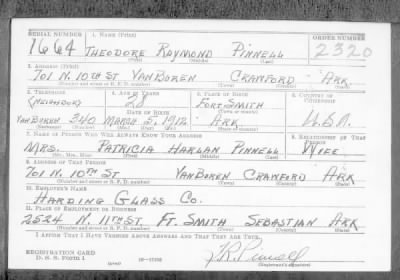 SERIAL NUMBER 1. NAME (Print) ORDER NUMBER
1664 THEODORE RAYMOND PINNELL 2320
(First) (Middle) (Last)
2. ADDRESS (Print)
701 N. 10TH ST VANBUREN CRAWFORD ARK
(Number and street or R. F. D. number) (Town) (County) (State)
3. TELEPHONE 4. AGE IN YEARS 5. PLACE OF BIRTH 6. COUNTRY OF CITIZENSHIP
(NEIGHBOR) 28 FORT SMITH
DATE OF BIRTH (Town or county)
VANBUREN 340 MARCH 2, 1912 ARK U.S.A.
(Exchange) (Number) (Mo.) (Day) (Yr.) (State or country)
7. NAME OF PERSON WHO WILL ALWAYS KNOW YOUR ADDRESS 8. RELATIONSHIP OF THAT PERSON
MRS. PATRICIA HARLAN PINNELL WIFE
(Mr., Mrs., Miss) (First) (Middle) (Last)
9. ADDRESS OF THAT PERSON
701 N. 10TH ST VANBUREN CRAWFORD ARK
(Number and street or R. F. D. number) (Town) (County) (State)
10. EMPLOYER'S NAME
HARDING GLASS CO.
11. PLACE OF EMPLOYMENT OR BUSINESS
2524 N. 11TH ST. FT. SMITH SEBASTIAN ARK
(Number and street or R. F. D. number) (Town) (County) (State)
I AFFIRM THAT I HAVE VERIFIED ABOVE ANSWERS AND THAT THEY ARE TRUE.
REGISTRATION CARD
D. S. S. Form 1 (over) 16—17105 (Registrant's signature)